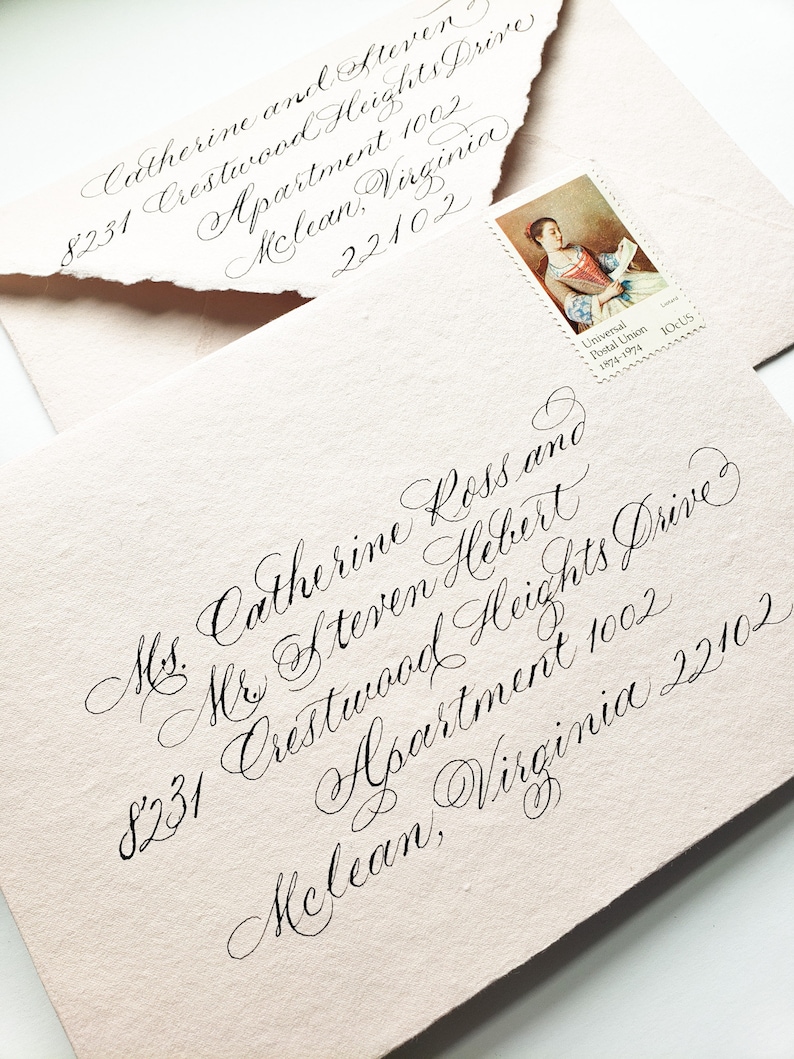 Catherine and Steven
8231 Crestwood Heights Drive
Apartment 1002
Mclean, Virginia
22102
Liotard
Universal
Postal Union
1874-1974 10cUS
Ms. Catherine Ross and
Mr. Steven Hebert
8231 Crestwood Heights Drive
Apartment 1002
Mclean, Virginia 22102